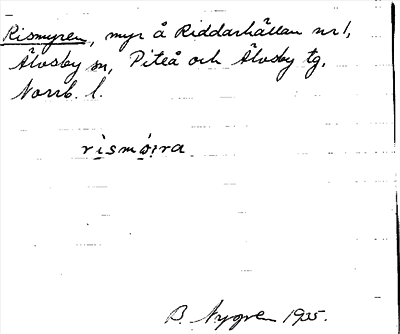 Rismyren, myr å Riddarhällan nr 1,
Älvsby sn, Piteå och Älvsby tg.
Norrb. l.
rismó:ra
B. Nygren 1935.